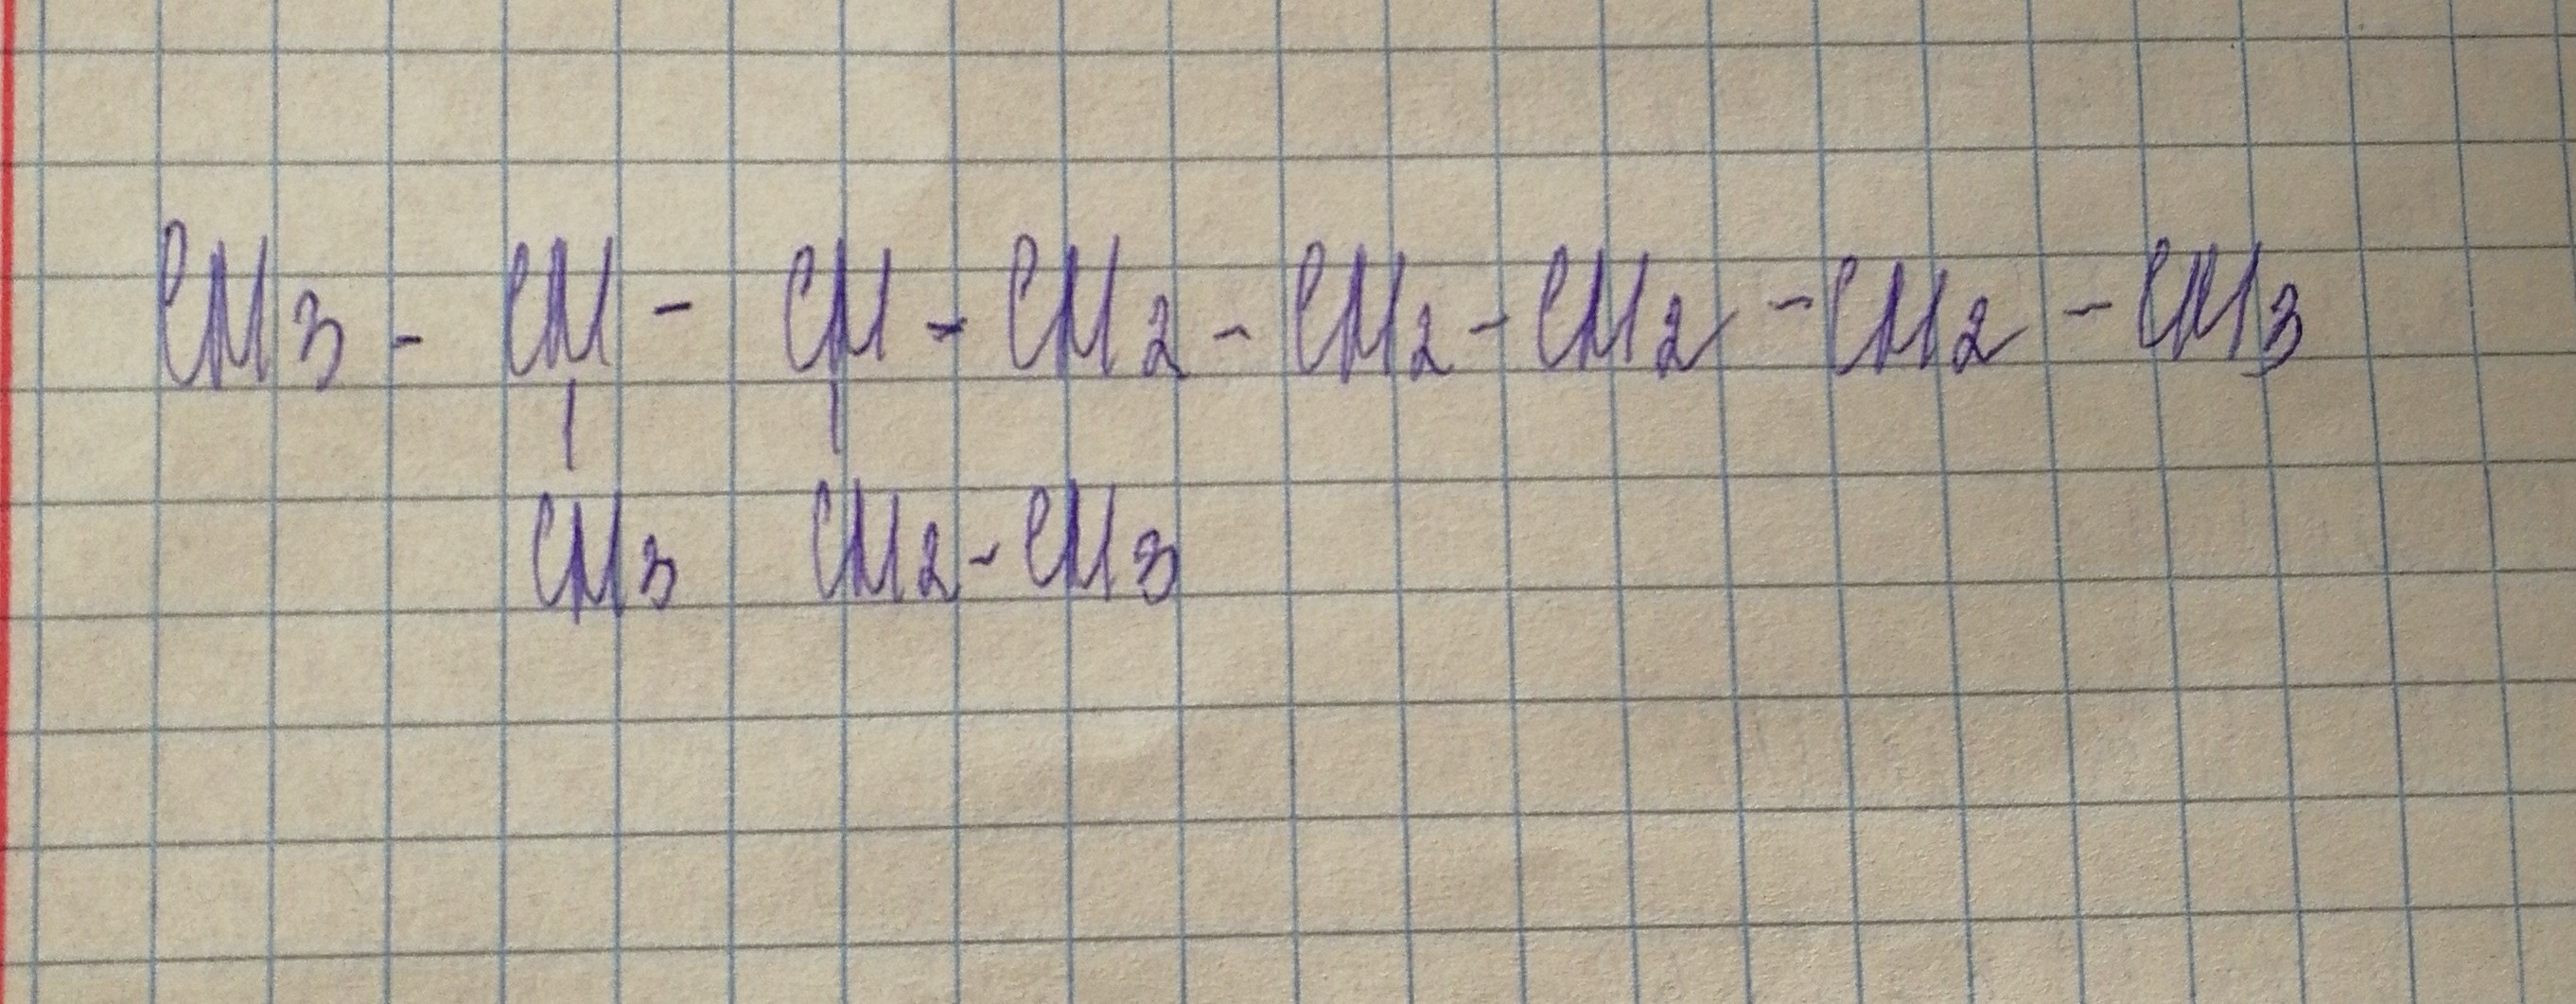 CH3 - CH - CH - CH2 - CH2 - CH2 - CH2 - CH3
| |
CH3 CH2 - CH3